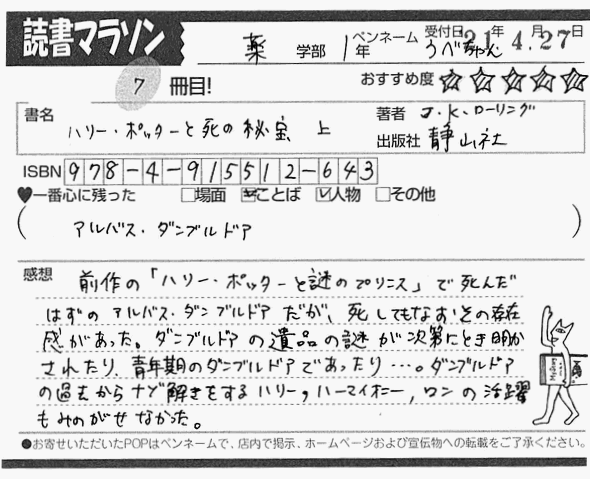 読書マラソン
薬 学部 1年 ペンネーム うべちゃん 受付日 21年 4.月27日
7 冊目! おすすめ度 ☆☆☆☆☆
書名 ハリー・ポッターと死の秘宝 上
著者 J.K.ローリング
出版社 静山社
ISBN 978-4-915512-643
♥一番心に残った □場面 ☑ことば ☑人物 □その他
( アルバス・ダンブルドア )
感想 前作の「ハリー・ポッターと謎のプリンス」で死んだ
はずのアルバス・ダンブルドアだが、死してもなおその存在
感があった。ダンブルドアの遺品の謎が次第にとき明か
されたり、青年期のダンブルドアであったり…。ダンブルドア
の過去からナゾ解きをするハリー,ハーマイオニー,ロンの活躍
もみのがせなかった。
●お寄せいただいたPOPはペンネームで、店内で掲示、ホームページおよび宣伝物への転載をご了承ください。